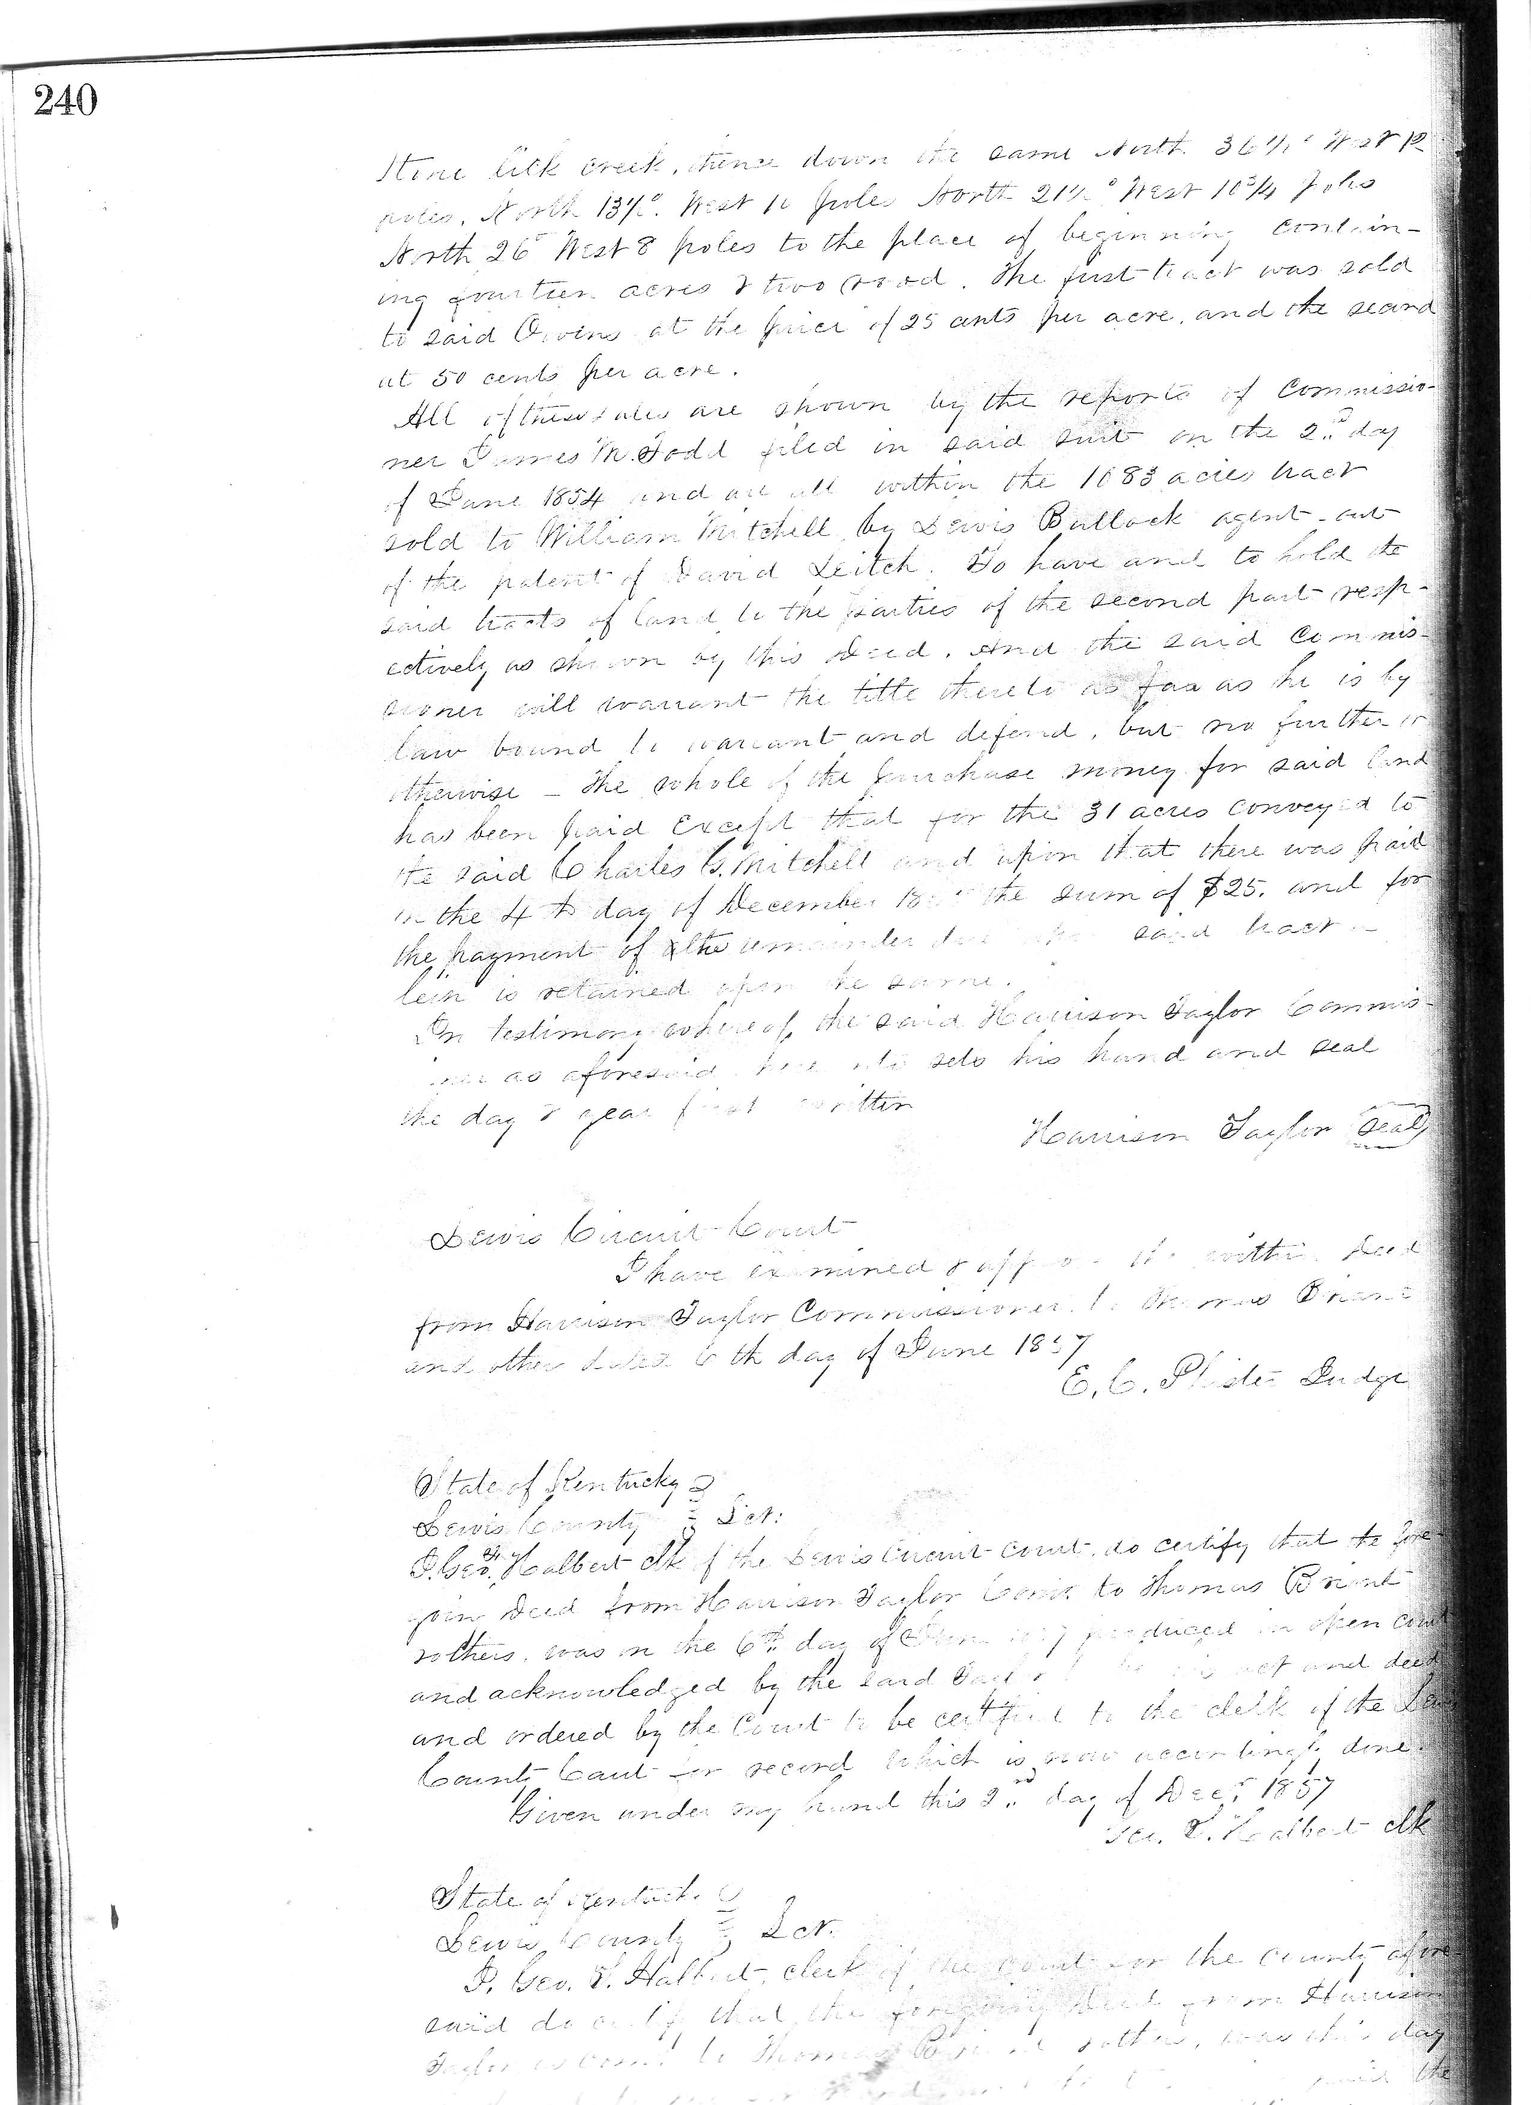 240
Stone lick creek, thence down the same North 36½° West 12
poles, North 13½° West 10 poles North 21½° West 10¾ poles
North 26° West 8 poles to the place of beginning contain-
ing fourteen acres & two rood. The first tract was sold
to said Owens at the price of 25 cents per acre, and the second
at 50 cents per acre.
All of these sales are shown by the reports of Commissio-
ner James M. Todd filed in said suit on the 2nd day
of June 1854 and are all within the 1083 acres tract
sold to William Mitchell by Lewis Bullock agent - out
of the patent of David Leitch. To have and to hold the
said tracts of land to the parties of the second part resp-
ectively as shown by this Deed. And the said Commis-
sioner will warrant the title thereto as far as he is by
law bound to warrant and defend, but no further or
otherwise - The whole of the purchase money for said land
has been paid Except that for the 31 acres conveyed to
the said Charles G. Mitchell and upon that there was paid
on the 4th day of December 18 the sum of $25. and for
the payment of the remainder due said tract a
lein is retained upon the same.
In testimony whereof the said Harrison Taylor Commis-
as aforesaid hereunto sets his hand and seal
the day & year first written
Harrison Taylor Seal
Lewis Circuit Court
I have examined & approve the within Deed
from Harrison Taylor Commissioner to Thomas Briant
and other dated 6th day of June 1857
E. C. Phister Judge
State of Kentucky
Lewis County Sct:
I, Geo. T. Halbert clk of the Lewis Circuit court, do certify that the fore-
goin Deed from Harrison Taylor Comr. to Thomas Briant
& others, was on the 6th day of June 1857 produced in open court
and acknowledged by the said Taylor to be his act and deed
and ordered by the Court to be certified to the clerk of the Lewis
County Court for record which is now accordingly done.
Given under my hand this 2nd day of Decr. 1857
Geo. T. Halbert clk
State of Kentucky
Lewis County Sct.
I, Geo. T. Halbert, clerk of the court for the county afore-
said do certify that the foregoing Deed from Harrison
Taylor as Comr. to Thomas Briant & others, was this day
the